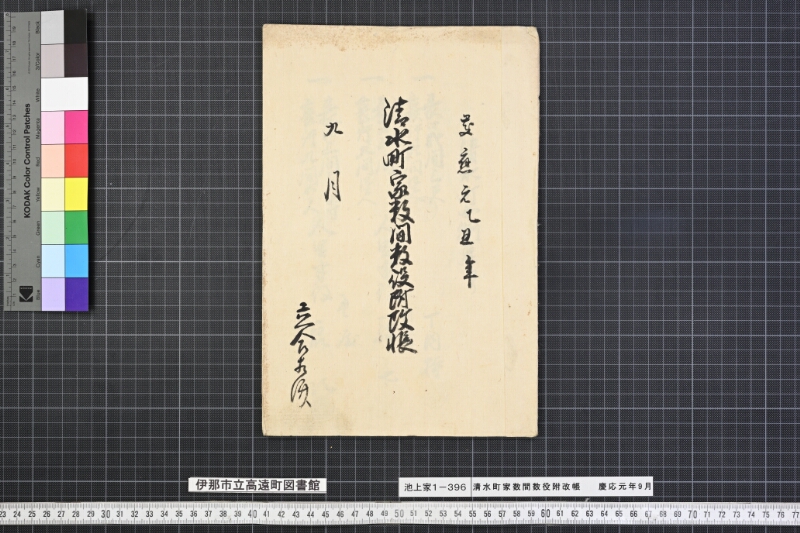 慶應元乙丑年
清水町家数間数役附改帳
九月
立会
伊那市立高遠町図書館
池上家1-396
清水町家数間数役附改帳 慶応元年9月
KODAK Color Control Patches
Black
3/Color
White
Magenta
Red
Yellow
Green
Cyan
Blue
Kodak
23 24 25 26 27 28 29 30 31 32 33 34 35 36 37 38 39 40 41 42 43 44 45 46 47 48 49 50 51 52 53 54 55 56 57 58 59 60 61 62 63 64 65 66 67 68 69 70 71 72 73 74 75 76 77